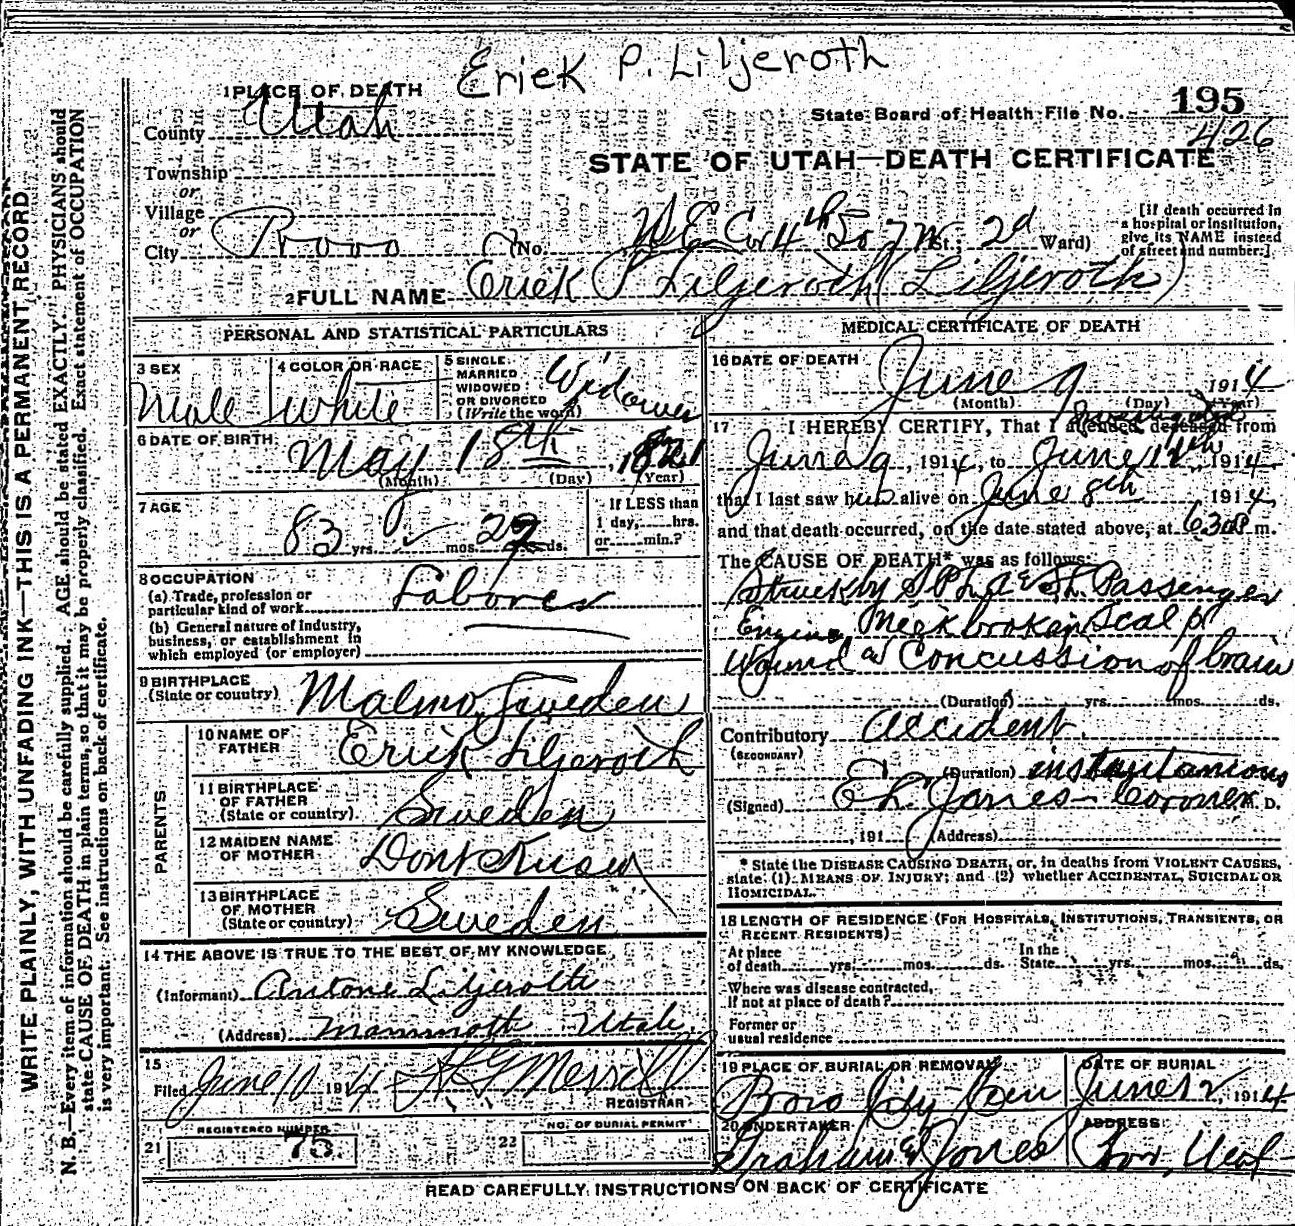 Eriek P. Liljeroth
1 PLACE OF DEATH
County Utah
State Board of Health File No. 195
426
STATE OF UTAH—DEATH CERTIFICATE
Township
or
Village
or
City Provo (No. N E Cor 4th So 7 W St.; 2d Ward)
[If death occurred in
a hospital or institution,
give its NAME instead
of street and number.]
2 FULL NAME Eriek P Liljeroth (Liljeroth)
PERSONAL AND STATISTICAL PARTICULARS
3 SEX
Male
4 COLOR OR RACE
White
5 SINGLE
MARRIED
WIDOWED
OR DIVORCED
(Write the word)
Widower
6 DATE OF BIRTH
May 18th
(Month) (Day) (Year)
7 AGE
83 yrs. mos. ds.
If LESS than
1 day, hrs.
or min.?
8 OCCUPATION
(a) Trade, profession or
particular kind of work
Laborer
(b) General nature of industry,
business, or establishment in
which employed (or employer)
9 BIRTHPLACE
(State or country) Malmo, Sweden
PARENTS
10 NAME OF
FATHER Erick Liljeroth
11 BIRTHPLACE
OF FATHER
(State or country) Sweden
12 MAIDEN NAME
OF MOTHER Dont Know
13 BIRTHPLACE
OF MOTHER
(State or country) Sweden
14 THE ABOVE IS TRUE TO THE BEST OF MY KNOWLEDGE
(Informant) Antone Liljeroth
(Address) Mammoth Utah
15
Filed June 10 1914 Merrill
REGISTRAR
21 REGISTERED NUMBER
75.
22 NO. OF BURIAL PERMIT
MEDICAL CERTIFICATE OF DEATH
16 DATE OF DEATH
June 9 1914
(Month) (Day) (Year)
17 I HEREBY CERTIFY, That I attended deceased from
Investigated
June 9, 1914, to June 12th, 1914
that I last saw him alive on June 8th 1914,
and that death occurred, on the date stated above, at 630P m.
The CAUSE OF DEATH* was as follows:
Struck by S P L A & S L Passenger
Engine, Neck broken, Scalp
Wound & Concussion of brain
(Duration) yrs. mos. ds.
Contributory Accident.
(SECONDARY)
(Duration) instantanious
(Signed) E L Jones - Coroner M. D.
, 191 (Address)
* State the DISEASE CAUSING DEATH, or, in deaths from VIOLENT CAUSES,
state (1) MEANS OF INJURY; and (2) whether ACCIDENTAL, SUICIDAL OR
HOMICIDAL.
18 LENGTH OF RESIDENCE (FOR HOSPITALS, INSTITUTIONS, TRANSIENTS, OR
RECENT RESIDENTS)
At place
of death yrs. mos. ds.
In the
State yrs. mos. ds.
Where was disease contracted,
if not at place of death?
Former or
usual residence
19 PLACE OF BURIAL OR REMOVAL
Provo City Cem
DATE OF BURIAL
June 12, 1914
20 UNDERTAKER
Graham & Jones
ADDRESS
Prov, Utah
READ CAREFULLY INSTRUCTIONS ON BACK OF CERTIFICATE
WRITE PLAINLY, WITH UNFADING INK—THIS IS A PERMANENT RECORD
N. B.—Every item of information should be carefully supplied. AGE should be stated EXACTLY. PHYSICIANS should
state CAUSE OF DEATH in plain terms, so that it may be properly classified. Exact statement of OCCUPATION
is very important. See instructions on back of certificate.